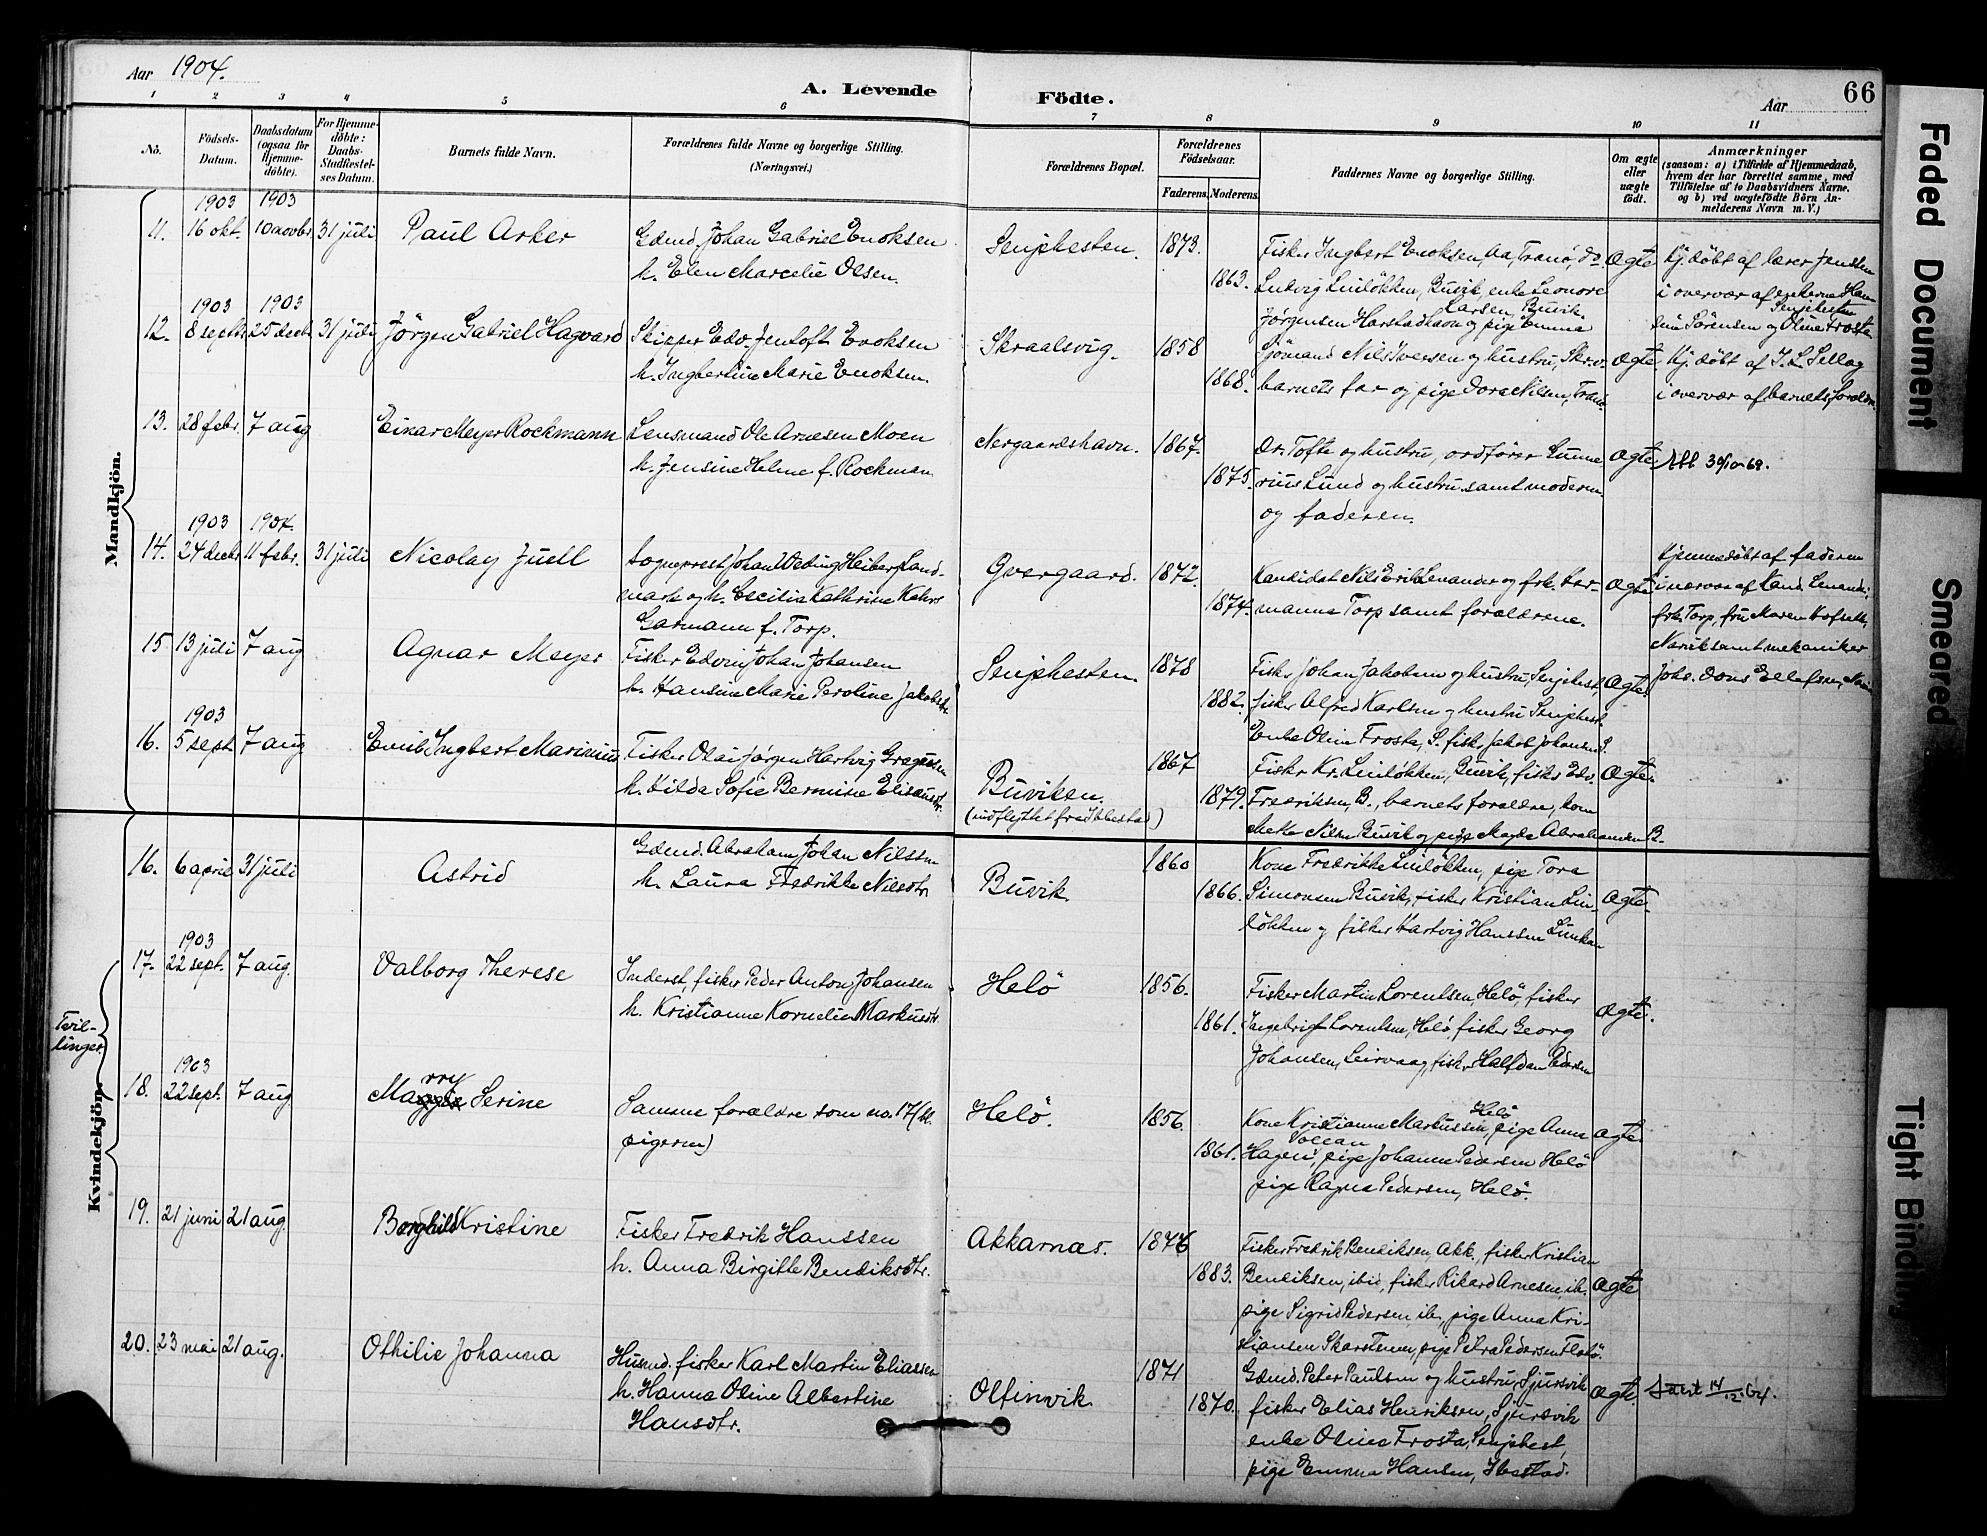 Aar 1904.
A. Levende
Födte.
Aar
66
1 2 3 4 5 6 7 8 9 10 11
No.
Födsels-Datum.
Daabsdatum (ogsaa for Hjemmedöbte).
For Hjemmedöbte: Daabs-Stadfæstelses Datum.
Barnets fulde Navn.
Forældrenes fulde Navne og borgerlige Stilling.
(Næringsvei.)
Forældrenes Bopæl.
Forældrenes Födselsaar.
Faderens. Moderens.
Faddernes Navne og borgerlige Stilling.
Om ægte eller uægte födt.
Anmærkninger
(saasom: a) i Tilfælde af Hjemmedaab,
hvem der har forrettet samme, med
Tilföielse af to Daabsvidners Navne.
og b) ved uægtefödte Börn An-
melderens Navn m. V.)
Mandkjön.
1903 1903
11. 16 okt. 10 novbr. 31 juli Paul Arker
Gdmd. Johan Gabriel Enoksen
h. Elen Marcelie Olsen.
Senjehesten. 1873. 1863.
Fisker Ingbert Enoksen, Aa, Tranö, do
Ludvig Linløkken, Buvik, enke Leonore
Larsen, Buvik.
Jørgensen Harstadhavn og pige Emma
Ægte
Hj.døbt af lærer Jenssen
i overvær af enkerne Han-
Senjehesten
sine Sørensen og Oline Frosta
1903 1903
12. 8 septbr 25 decbr 31 juli Jörgen Gabriel Hagvard
Skipper Edv. Jentoft Enoksen
h. Ingbertine Marie Enoksen.
Skraalsvig. 1858 1868.
Sjömand Nils Iversen og hustru, Skr.v.
barnets far og pige Dora Nilsen, Tranö.
Ægte
Hj. døbt af J. L. Sellag
i overvær af barnets foræld.
13. 28 febr. 7 aug Einar Meyer Rockmann
Lensmand Ole Arnesen Moen
h. Jensine Helme f. Rockman
Nergaardshavn. 1867. 1875.
Dr. Tofte og hustru, ordfører Gunne-
rius Lund og hustru samt moderen
og faderen.
Ægte
Att 30/10-69.
1903 1904.
14. 24 decbr 11 febr. 31 juli Nicolay Juell
Sogneprest Johan Weding Heiberg Land-
mark og h. Cecilia Kathrine Kahrs
Garmann f. Torp.
Gvergaard. 1872. 1874.
Kandidat Nils Erik Lenander og frk. Gar-
manna Torp samt forældrene.
Ægte
Hjemmedøbt af faderen
i nærvær af Kand. Lenander,
frk. Torp, fru Maren Hofseth,
Narvik samt mekaniker
Johs. Dons Ellefsen,
15 13 juli 7 aug Agnar Meyer
Fisker Edvin Johan Johansen
h. Hansine Marie Peroline Jakobsdtr
Senjehesten 1878 1882.
Fisk. Johan Jakobsen og hustru, Senjehest.
fisker Alfred Karlsen og hustru Senjehest.
Enke Oline Frosta, S. fisk. Jakob Johansen S.
Ægte
1903
16. 5 sept 7 aug Emil Ingbert Marinius
Fisker Olai Jørgen Hartvig Gregusen
h. Hilda Sofie Bernine Eliseusdtr.
Buviken.
(indflyttet fra Ibbestad)
1867 1879.
Fisker Kr. Linløkken, Buvik, fisker Edv.
Fredriksen, B., barnets forældre, kone
Meka Nilsen Buvik og pige Magda Abrahamsen B.
Ægte
Kvindekjön.
16. 6 april 31 juli Astrid
Gdmd. Abraham Johan Nilssen
h. Laura Fredrikke Nilsdtr.
Buvik 1860 1866.
Kone Fredrikke Linløkken, pige Tora
Simonsen Buvik, fisker Kristian Lin-
løkken og fisker Hartvig Hanssen Linkan
Ægte
Tvil-
linger
1903
17. 22 sept. 7 aug. Valborg Therese
Inderst, fisker Peder Anton Johansen
h. Kristianne Kornelia Markusdtr.
Helö 1856. 1861.
Fisker Martin Lorentsen, Helö, fisker
Ingebrigt Lorentsen, Helö, fisker Georg
Johansen, Leirvaag, fisk. Halfdan Pedersen
Ægte.
1903
18. 22 sept. 7 aug Marry Serine
Samme forældre som no. 17 (bl.
pigerne)
Helö. 1856. 1861.
Helö
Kone Kristianne Markussen, pige Anna
Vollan
Hagen, pige Johanne Pedersen Helö
pige Ragna Pedersen, Helö.
Ægte
19. 21 juni 21 aug. Borghild Kristine
Fisker Fredrik Hanssen
h. Anna Birgitte Bendiksdtr.
Akkarnæs. 1876 1883.
Fisker Fredrik Bendiksen, Akk., fisker Kristian
Bendiksen, ibid, fisker Rikard Arnesen, ib.
pige Sigrid Pedersen, ib., pige Anna Kri-
stiansen Skarstennes, pige Petra Pedersen Flatø.
Ægte
20. 23 mai 21 aug. Othilie Johanna
Husmd. fisker Karl Martin Eliassen
h. Hanna Oline Albertine
Hansdtr.
Olfinvik 1871 1870.
Gdmd. Peter Paulsen og hustru, Sjursvik
fisker Elias Henriksen, Sjursvik
enke Olina Frosta, Senjehest,
pige Emma Hansen, Ibestad.
Ægte
Attest 14/12 64.
Faded Document
Smeared
Tight Binding